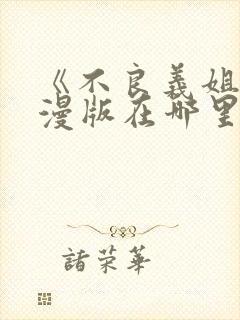 《不良義姐
漫版在哪里
諸荣華